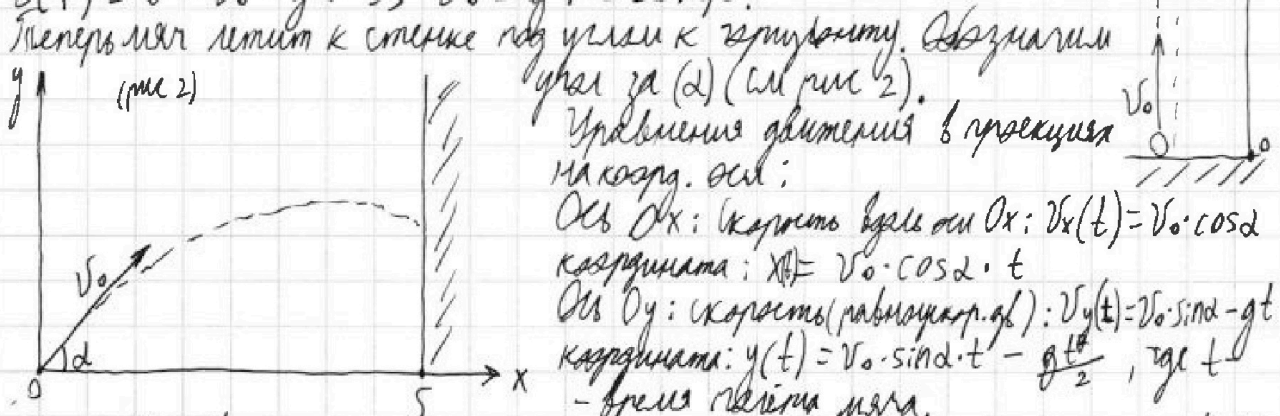 Теперь мяч летит к стенке под углом к горизонту. Обозначим
угол за (α) (см рис 2).
y
(рис 2)
V₀
Уравнения движения в проекциях
на коорд. оси:
Ось Ox: скорость вдоль оси Ox: Vx(t)=V₀·cosα
координата: x(t)= V₀·cosα·t
V₀
Ось Oy: скорость(равноускор.дв): Vy(t)=V₀·sinα-gt
координата: y(t)=V₀·sinα·t - gt²/2, где t-
α
0
S
x
- время полёта мяча.
0